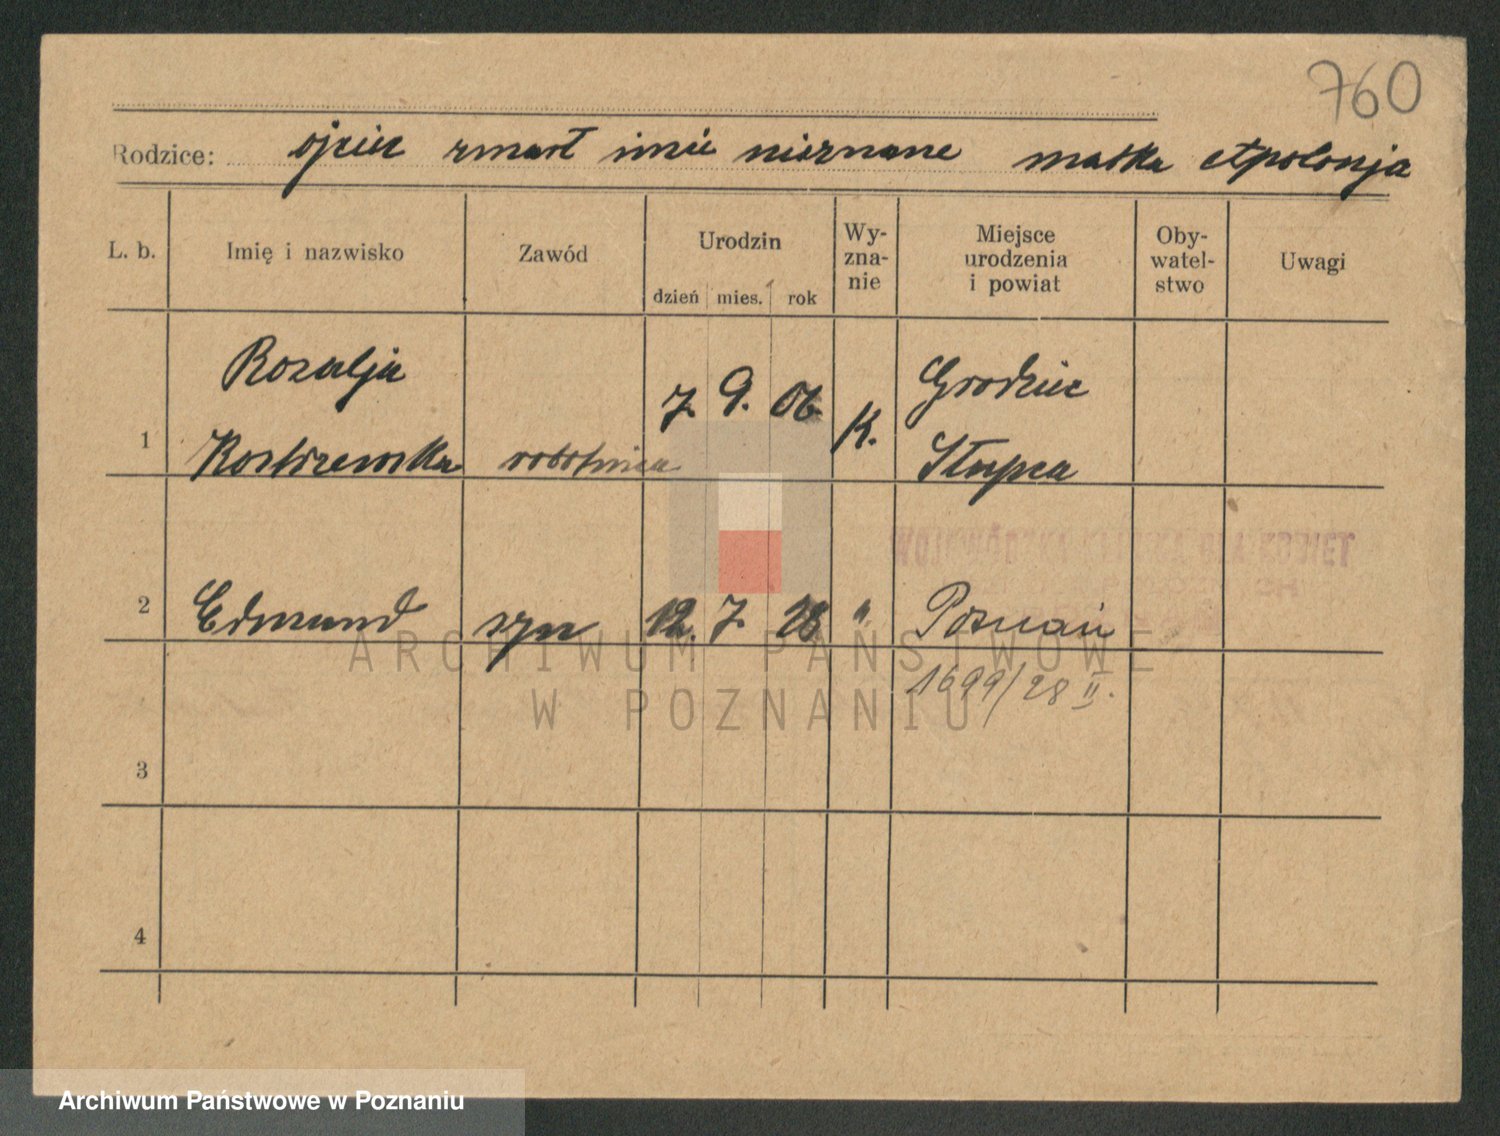 760
Rodzice: ojciec zmarł imię nieznane matka Apolonja
L. b. Imię i nazwisko Zawód Urodzin Wy-zna-nie Miejsce urodzenia i powiat Oby-watel-stwo Uwagi
dzień mies. rok
Rozalja 7. 9. 06. K. Grodziec
1 Kostrzewska robotnica Słupca
2 Edmund syn 12. 7. 28 " Poznań
1699/28 II.
3
4
ARCHIWUM PAŃSTWOWE
W POZNANIU
Archiwum Państwowe w Poznaniu